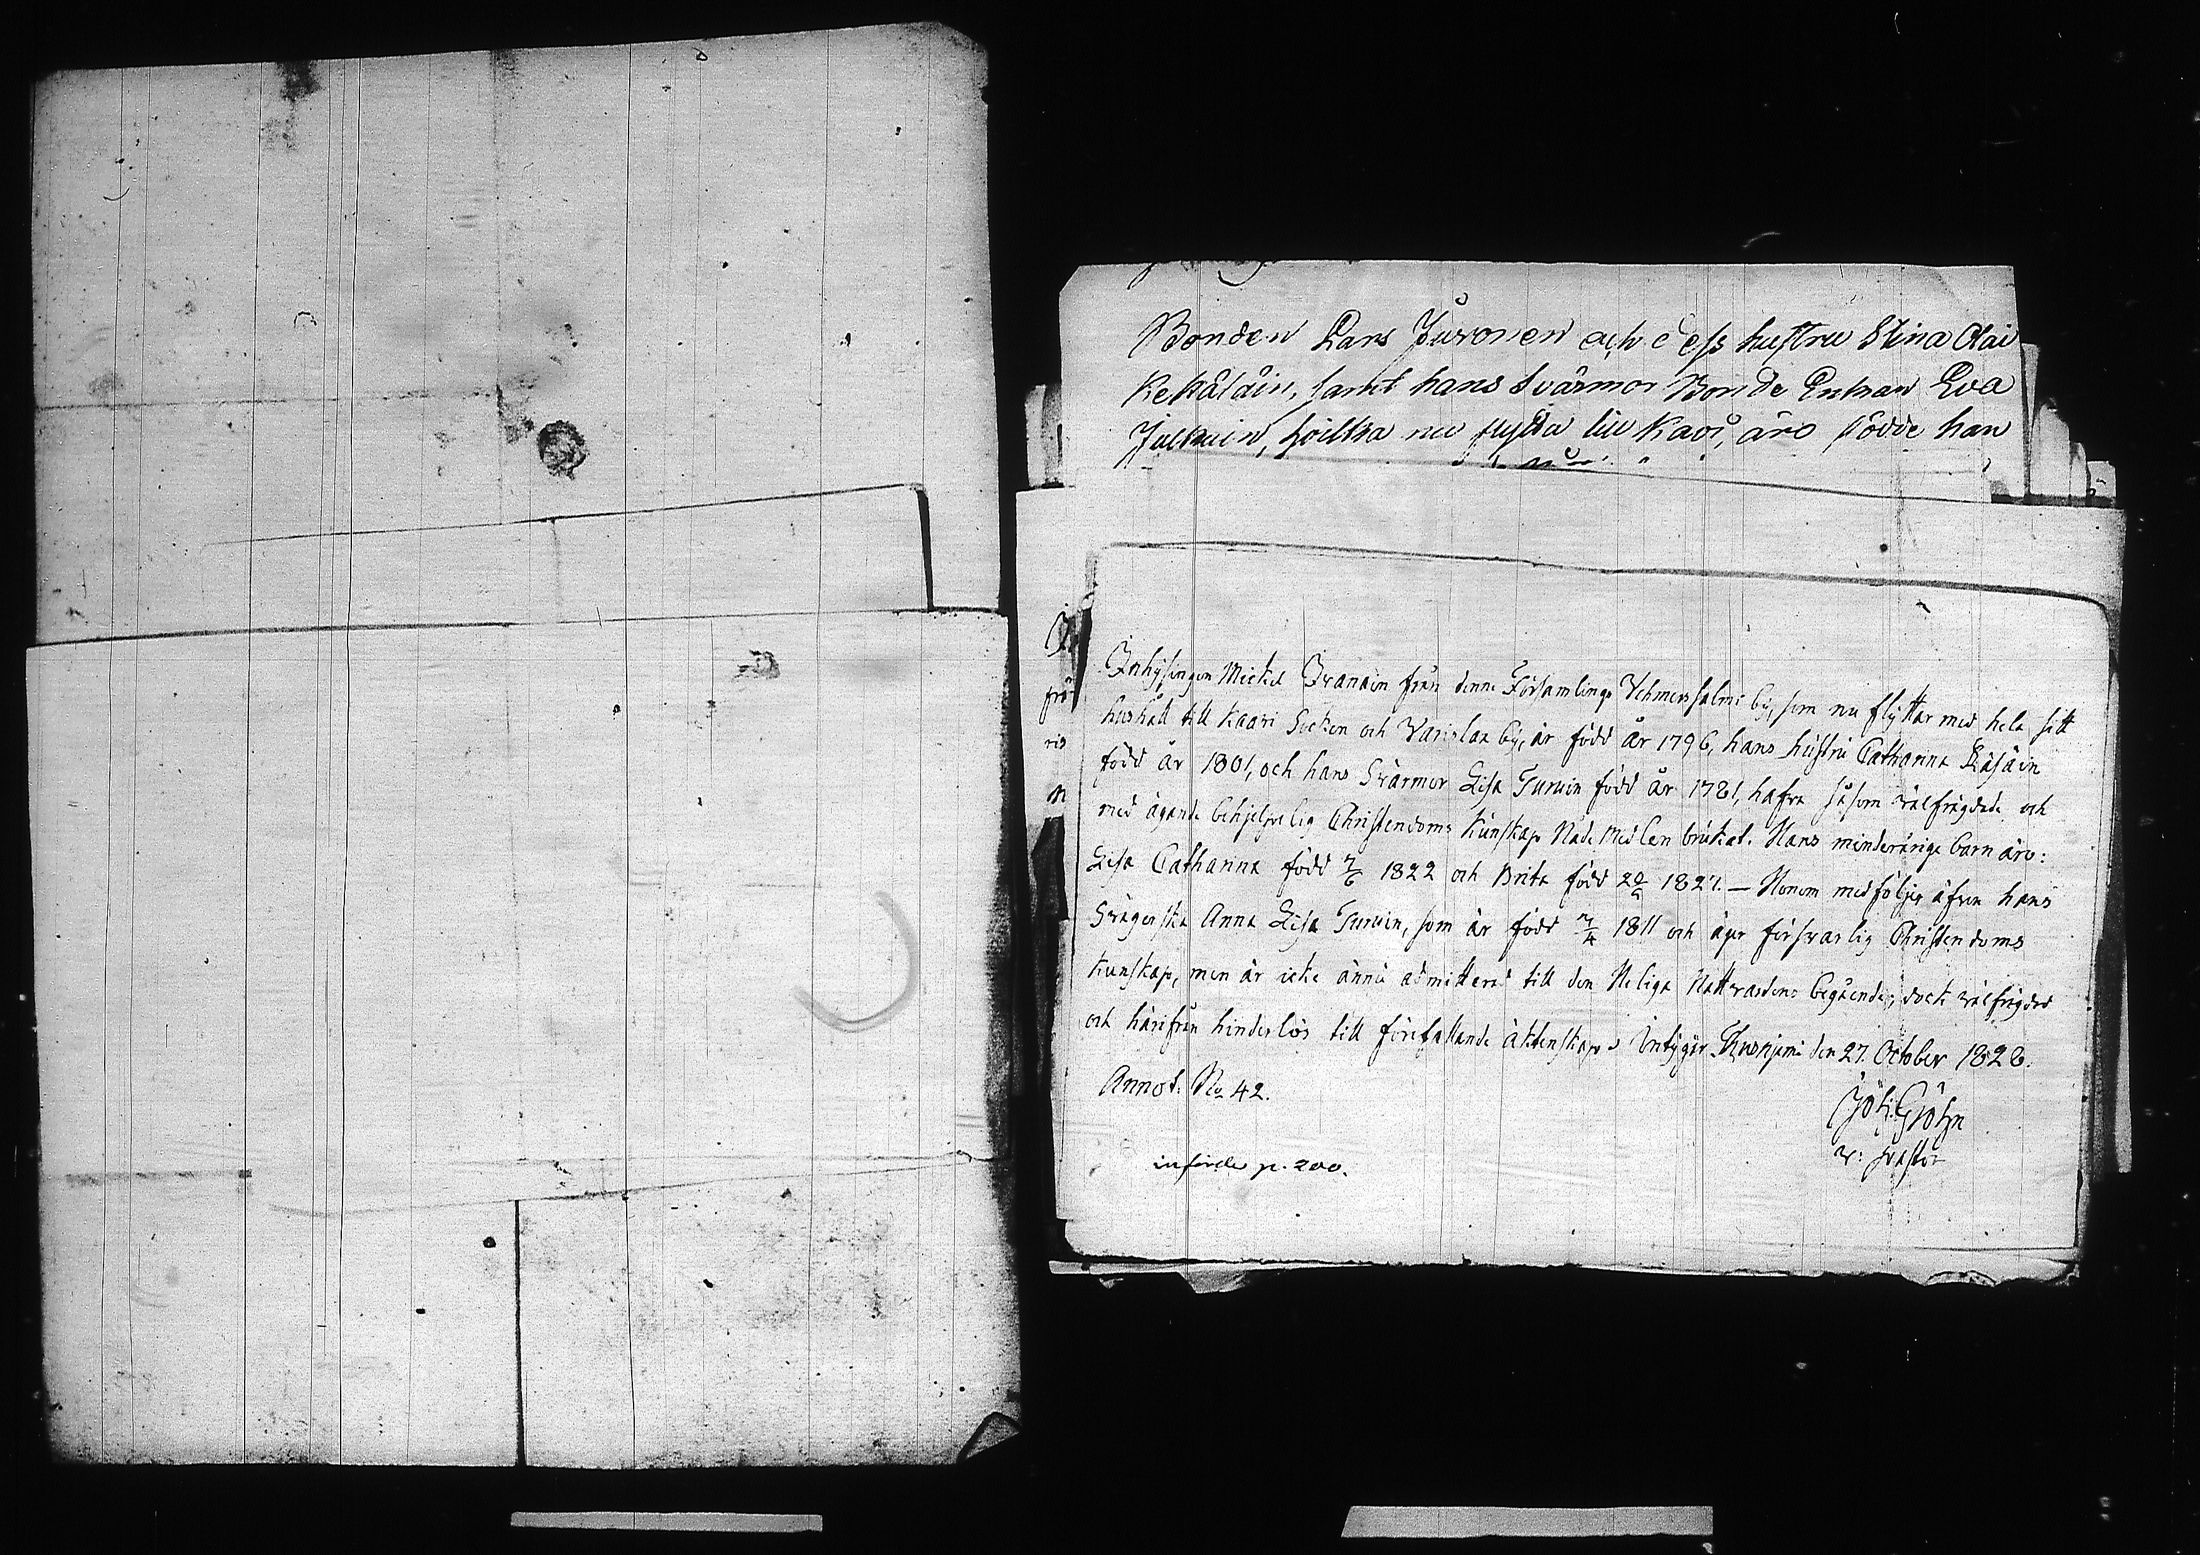 Bonden Lars Juvonen och dess hustru Stina Cai
Kekäläin, samt hans Svärmor Bonde Enkan Eva
hvilka nu flytta till Kavi, äro födde han
Inhysingen Mickel Ivanain från denne Församlings Vehmersalmi by, som nu flyttar med hela sitt
hushåll till Kaavi Socken och Varislax by, är född år 1796, hans hustru Catharina Räsäin
född år 1801, och hans Svärmor Lisa Turuin född år 1781, hafva såsom välfrägdade och
med ägande behjelpelig Christendoms Kunskap Nademedlen brukat. Hans minderårige barn äro:
Lisa Catharina född 7/6 1822 och Brita född 20/6 1827. — Honom medföljer äfven hans
Svägerska Anna Lisa Turuin, som är född 7/4 1811 och äger försvarlig Christendoms
Kunskap, men är icke ännu admitterad till den Heliga Nattvardens begående, dock välfrägdad
och härifrån hinderlös till förefallande äktenskap; Intygar Kuopio den 27. October 1828.
Annot: No 42.
Joh: Gröhn
v: pastor
införde p. 200.